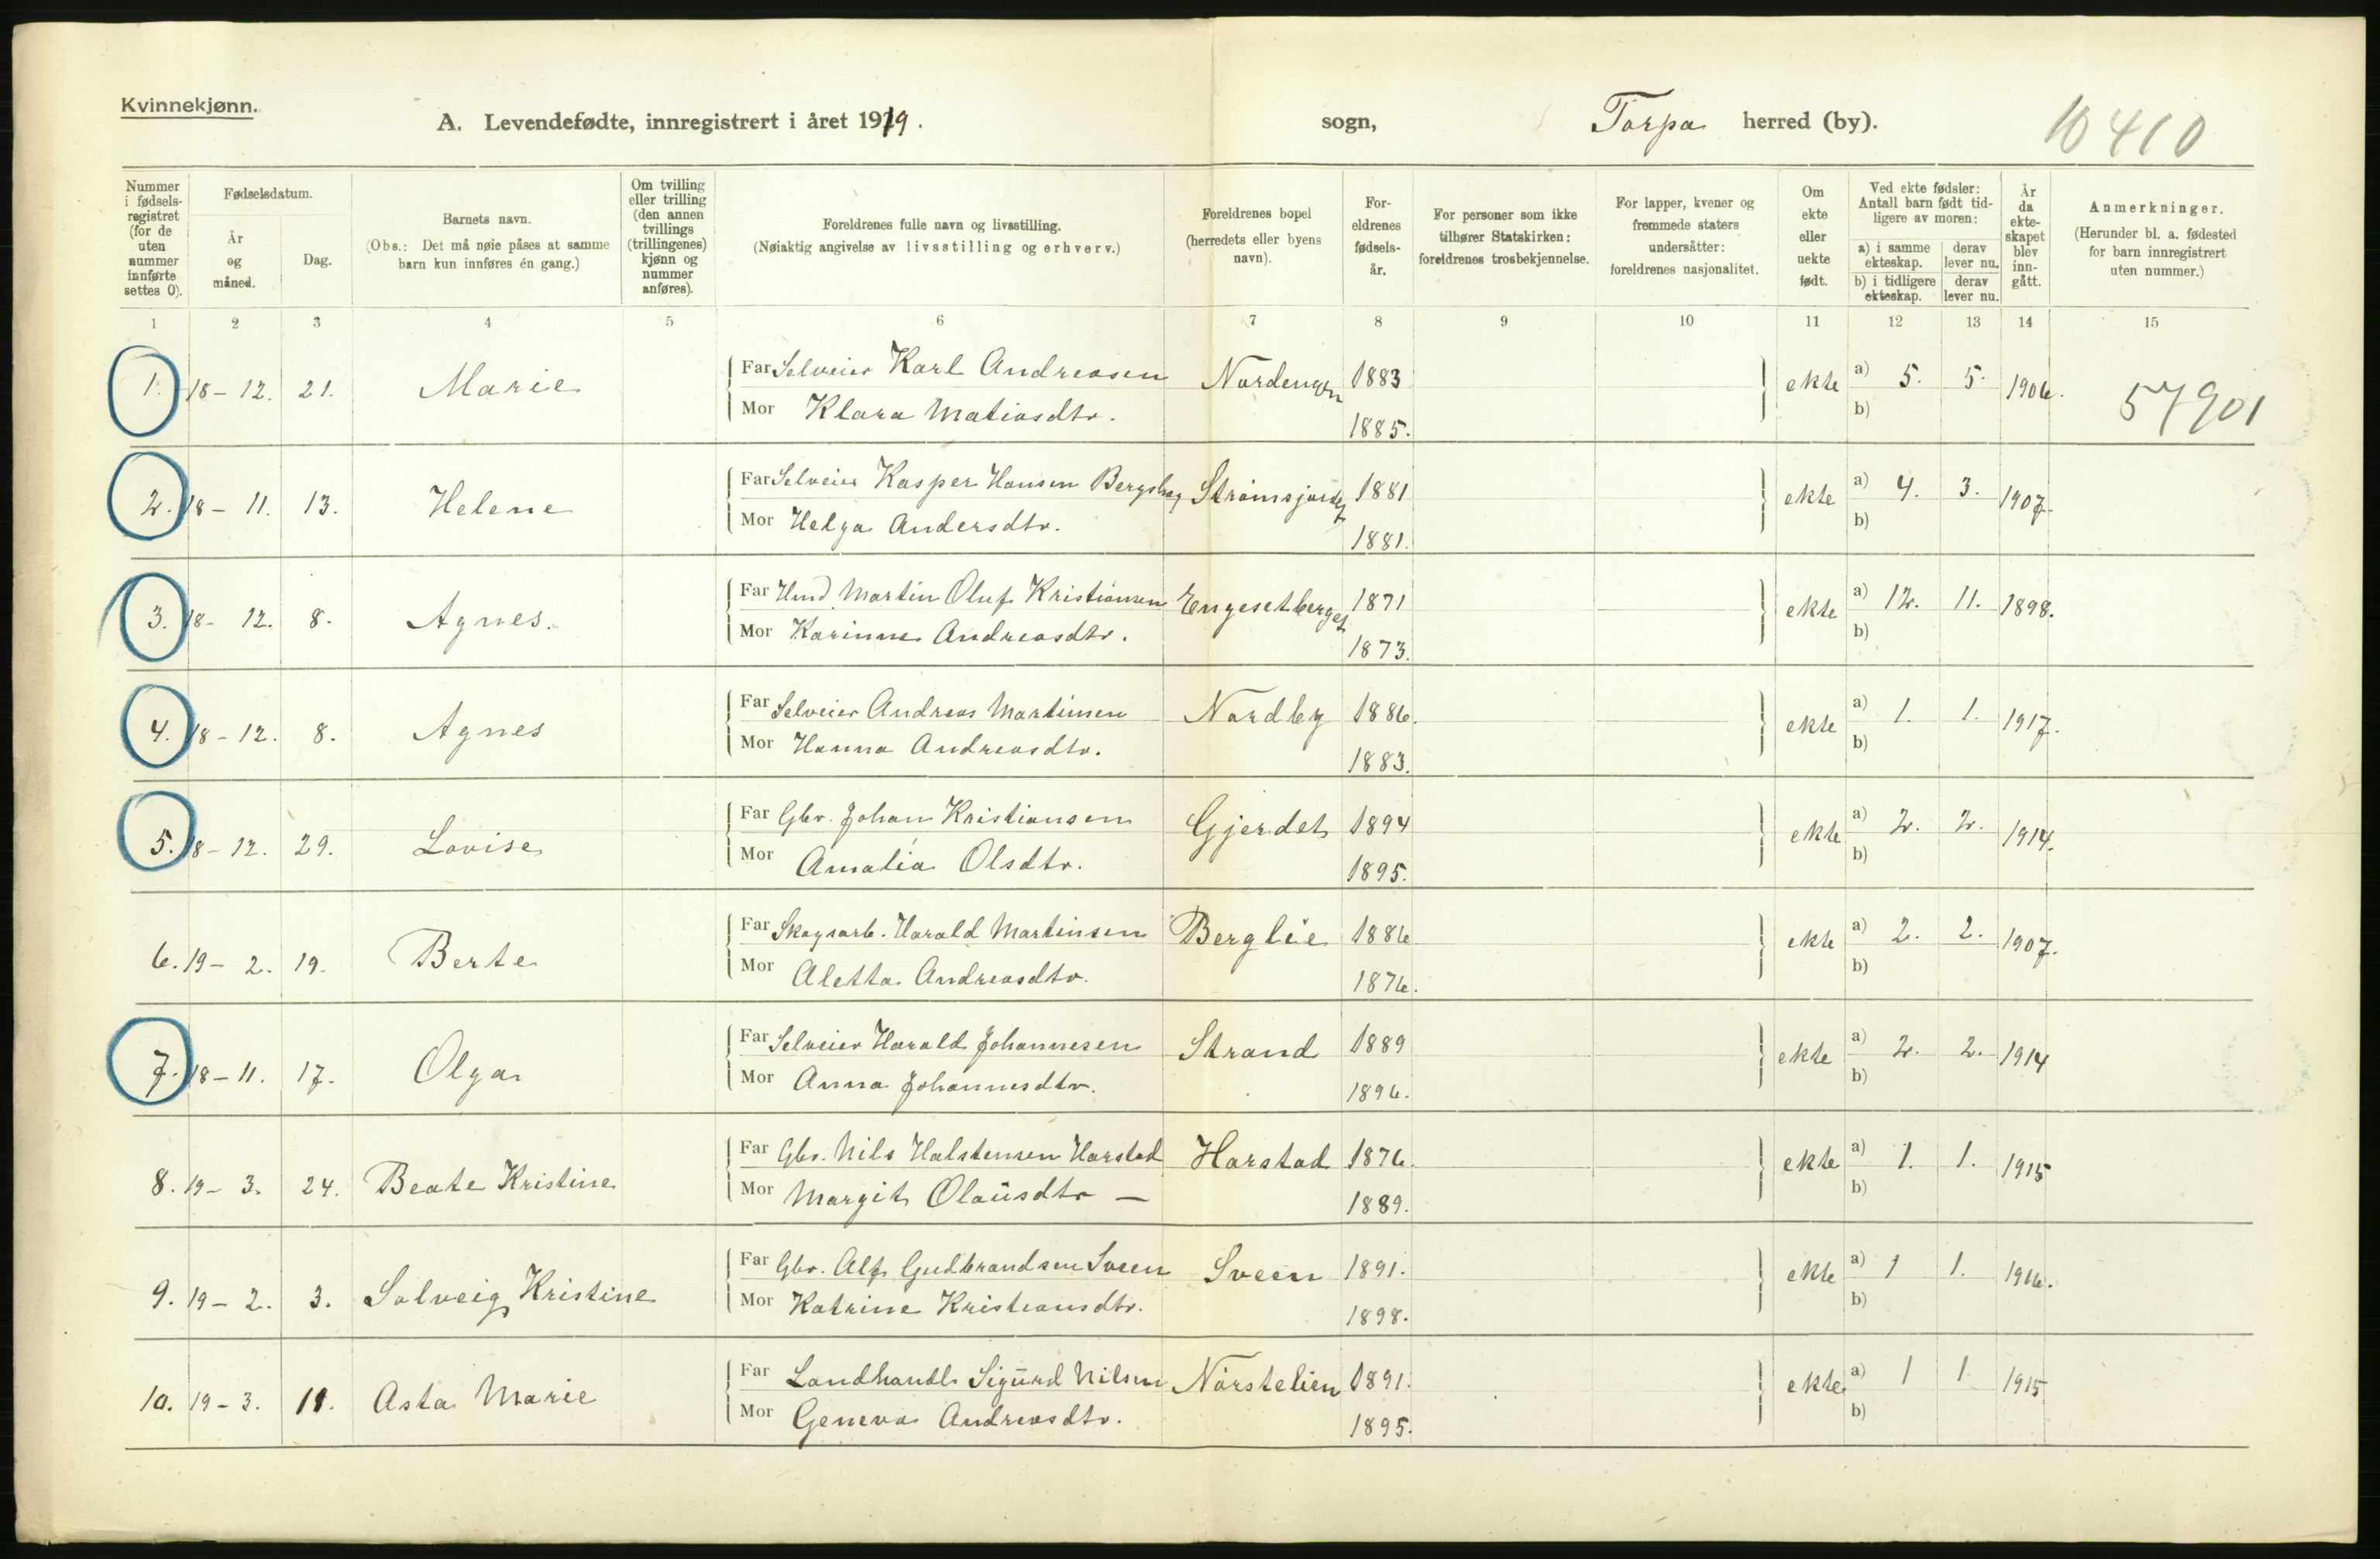 Kvinnekjønn.
A. Levendefødte, innregistrert i året 1919. sogn, Torpa herred (by). 10410
Nummer i fødsels-registret (for de uten nummer innførte settes 0).
Fødselsdatum.
År og måned.
Dag.
Barnets navn.
(Obs.: Det må nøie påses at samme barn kun innføres én gang.)
Om tvilling eller trilling (den annen tvillings (trillingenes) kjønn og nummer anføres).
Foreldrenes fulle navn og livsstilling.
(Nøiaktig angivelse av livsstilling og erhverv.)
Foreldrenes bopel (herredets eller byens navn).
For-eldrenes fødsels-år.
For personer som ikke tilhører Statskirken: foreldrenes trosbekjennelse.
For lapper, kvener og fremmede staters undersåtter: foreldrenes nasjonalitet.
Om ekte eller uekte født.
Ved ekte fødsler: Antall barn født tid-ligere av moren:
a) i samme ekteskap. derav lever nu.
b) i tidligere ekteskap. derav lever nu.
År da ekte-skapet blev inn-gått.
Anmerkninger.
(Herunder bl. a. fødested for barn innregistrert uten nummer.)
1 2 3 4 5 6 7 8 9 10 11 12 13 14 15
1. 18-12. 21. Marie Far Selveier Karl Andreasen Nordengen 1883 ekte a) 5. 5. 1906. 57901
Mor Klara Matiasdtr. 1885. b)
2. 18-11. 13. Helene Far Selveier Kasper Hansen Bergshag Strømsjordet 1881 ekte a) 4. 3. 1907.
Mor Helga Andersdtr. 1881. b)
3. 18-12. 8. Agnes. Far Hmd Martin Oluf Kristiansen Engesetberget 1871 ekte a) 12. 11. 1898.
Mor Karinne Andreasdtr. 1873. b)
4. 18-12. 8. Agnes Far Selveier Andreas Martinsen Nordby 1886. ekte a) 1. 1. 1917.
Mor Hanna Andreasdtr. 1883. b)
5. 18-12. 29. Lovise Far Gbr. Johan Kristiansen Gjerdet 1894 ekte a) 2. 2. 1914.
Mor Amalia Olsdtr. 1895. b)
6. 19-2. 19. Berte Far Skogsarb. Harald Martinsen Berglie 1886 ekte a) 2. 2. 1907.
Mor Aletta Andreasdtr. 1876. b)
7. 18-11. 17. Olga Far Selveier Harald Johannesen Strand 1889 ekte a) 2. 2. 1914
Mor Anna Johannesdtr. 1896. b)
8. 19-3. 24. Beate Kristine Far Gbr. Nils Halstensen Harstad Harstad 1876. ekte a) 1. 1. 1915
Mor Margit Olausdtr — 1889. b)
9. 19-2. 3. Solveig Kristine Far Gbr. Alf Gudbrandsen Sveen Sveen 1891. ekte a) 1 1. 1916.
Mor Katrine Kristiansdtr. 1898. b)
10. 19-3. 11. Asta Marie Far Landhandl. Sigurd Nilsen Nørstelien 1891. ekte a) 1 1 1915
Mor Geneva Andreasdtr. 1895. b)